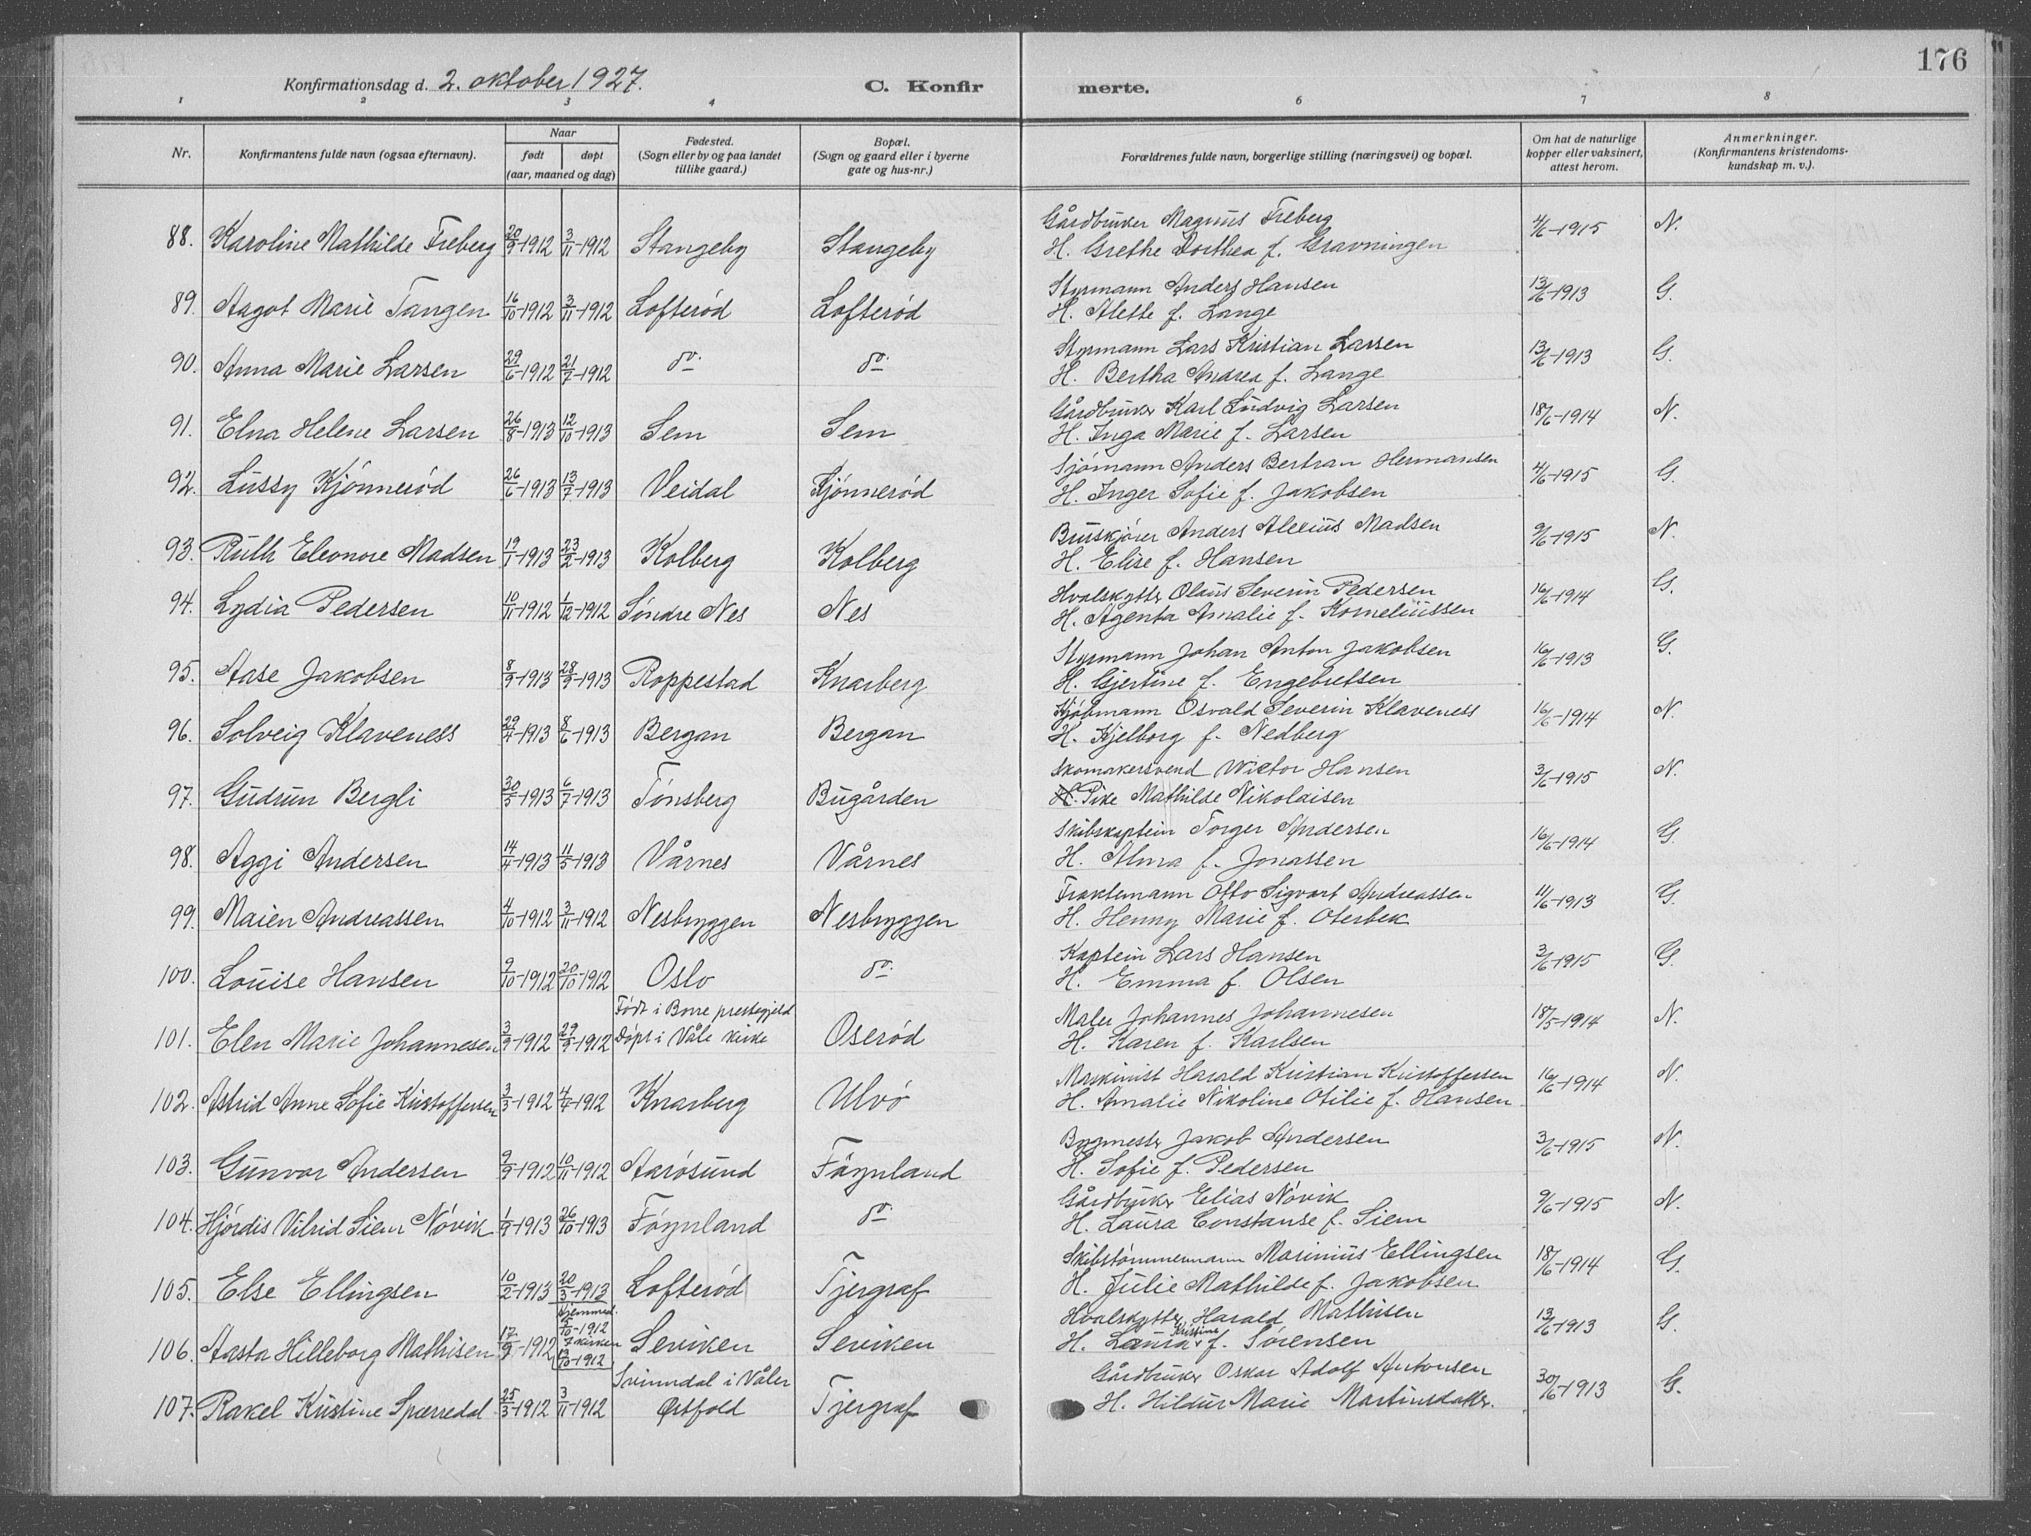 176
Konfirmationsdag d. 2. oktober 1927. C. Konfirmerte.
1 2 3 4 6 7 8
Nr. Konfirmantens fulde navn (ogsaa efternavn). Naar født døpt (aar, maaned og dag) Fødested. (Sogn eller by og paa landet tillike gaard.) Bopæl. (Sogn og gaard eller i byerne gate og hus-nr.) Forældrenes fulde navn, borgerlige stilling (næringsvei) og bopæl. Om hat de naturlige kopper eller vaksinert, attest herom. Anmerkninger. (Konfirmantens kristendomskundskap m. v.).
88. Karoline Mathilde Freberg 20/9-1912 3/11-1912 Stangeby Stangeby Gårdbruker Magnus Freberg 4/6-1915 N.
H. Grethe Dorthea f. Gravningen
89. Aagot Marie Tangen 16/10-1912 3/11-1912 Lofterød Lofterød Styrmann Anders Hansen 13/6-1913 G.
H. Alette f. Lange
90. Anna Marie Larsen 29/6-1912 21/7-1912 do. do. Styrmann Lars Kristian Larsen 13/6-1913 G.
H. Bertha Andrea f. Lange
91. Elna Helene Larsen 26/8-1913 12/10-1913 Sem Sem Gårdbruker Karl Ludvig Larsen 18/6-1914 N.
H. Inga Marie f. Larsen
92. Lussy Kjønnerød 26/6-1913 13/7-1913 Veidal Kjønnerød Sjømann Anders Bertran Hermansen 4/6-1915 G.
H. Inger Sofie f. Jakobsen
93. Ruth Eleonore Madsen 19/1-1913 23/2-1913 Kolberg Kolberg Buskjører Anders Alexius Madsen 9/6-1915 N.
H. Elise f. Hansen
94. Lydia Pedersen 10/11-1912 1/12-1912 Søndre Nes Nes Hvalskytter Olaus Severin Pedersen 16/6-1914 G.
H. Agenta Amalie f. Korneliussen
95. Aase Jakobsen 8/9-1913 28/9-1913 Roppestad Knarberg Styrmann Johan Anton Jakobsen 16/6-1913 G.
H. Gjertine f. Engebretsen
96. Solveig Klaveness 29/4-1913 8/6-1913 Bergan Bergan Kjøbmann Osvald Severin Klaveness 16/6-1914 N.
H. Kjelborg f. Nedberg
97. Gudrun Bergli 30/5-1913 6/7-1913 Tønsberg Bugården Skomakersvend Wictor Hansen 3/6-1915 N.
H. Pike Mathilde Nikolaisen
98. Aggi Andersen 14/4-1913 11/5-1913 Vårnes Vårnes Skibskaptein Torger Andersen 16/6-1914 G.
H. Alma f. Jonassen
99. Maien Andreassen 4/10-1912 3/11-1912 Nesbryggen Nesbryggen Fraktemann Otto Sigvart Andreassen 11/6-1913 G.
H. Henny Marie f. Oterbek
100. Louise Hansen 9/10-1912 20/10-1912 Oslo do. Kaptein Lars Hansen 3/6-1915 G.
H. Emma f. Olsen
Født i Borre prestegjeld
101. Elen Marie Johannesen 3/9-1912 29/9-1912 Døpt i Våle kirke Oserød Maler Johannes Johannesen 18/5-1914 N.
H. Karen f. Karlsen
102. Astrid Anne Sofie Kristoffersen 3/3-1912 4/7-1912 Knarberg Ulvø Maskinist Harald Kristian Kristoffersen 16/6-1914 N.
H. Amalie Nikoline Otilie f. Hansen
103. Gunvor Andersen 9/9-1912 10/11-1912 Aarøsund Føynland Bygmester Jakob Andersen 3/6-1915 N.
H. Sofie f. Pedersen
104. Hjørdis Vilrid Siem Nøvik 1/9-1913 26/10-1913 Føynland do. Gårdbruker Elias Nøvik 9/6-1915 N.
H. Laura Constanse f. Siem
105. Else Ellingsen 10/2-1913 20/3-1913 Lofterød Tjergraf Skibstømmermann Marinius Ellingsen 18/6-1914 G.
H. Julie Mathilde f. Jakobsen
Hjemmed.
106. Aasta Hilleborg Mathisen 17/9-1912 5/10-1912 I kirken 13/10-1912 Serviken Serviken Hvalskytter Harald Mathisen 13/6-1913 G.
H. Laura Kristine f. Sørensen
Svinndal i Våler
107. Rakel Kristine Sperredal 25/3-1912 3/11-1912 Østfold Tjergraf Gårdbruker Oskar Adolf Antonsen 30/6-1913 G.
H. Hildur Marie Martinsdatter.